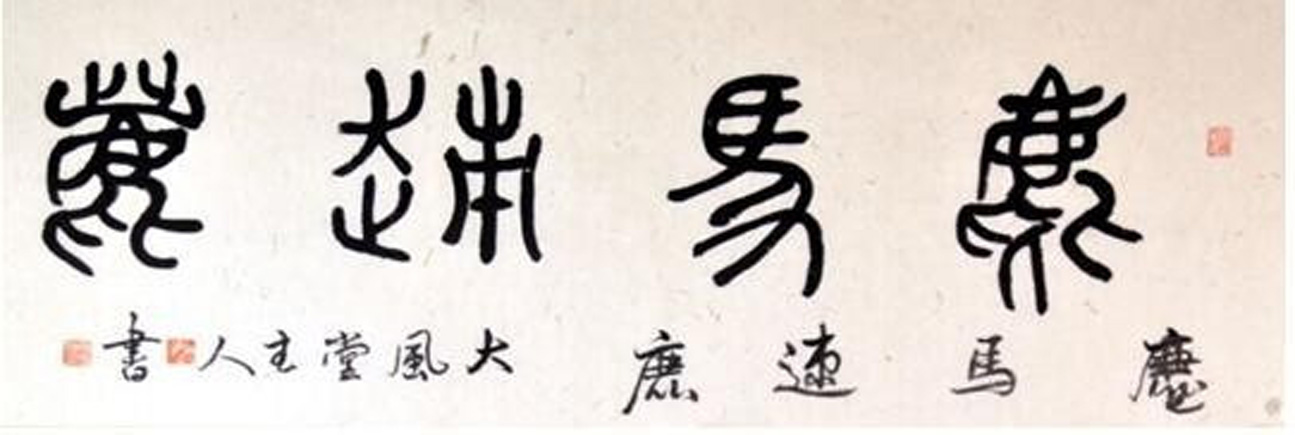 馬速鹿
馬速鹿
大風堂主人書